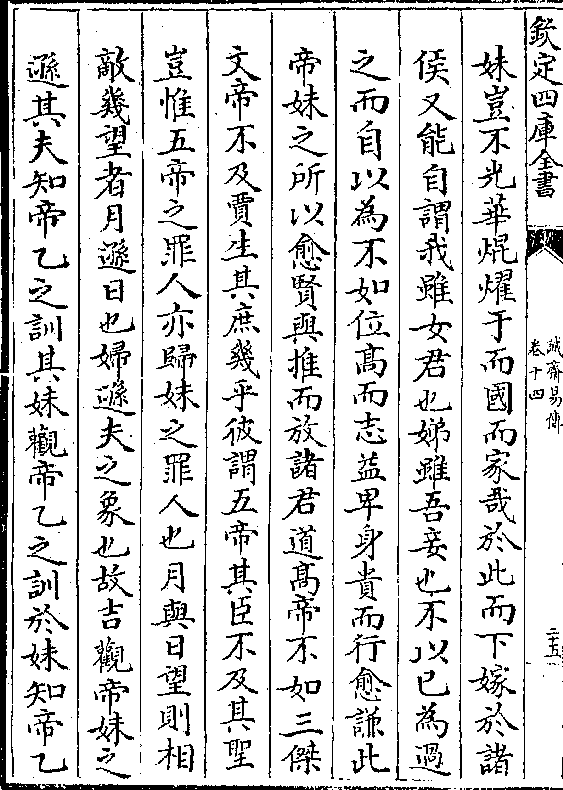 欽定四庫全書
誠齋易傳
卷十四
二十五
妹豈不光華焜燿于而國而家哉於此而下嫁於諸
侯又能自謂我雖女君也娣雖吾妾也不以已為過
之而自以為不如位髙而志益卑身貴而行愈謙此
帝妹之所以愈賢與推而放諸君道髙帝不如三傑
文帝不及賈生其庶幾乎彼謂五帝其臣不及其聖
豈惟五帝之罪人亦歸妹之罪人也月與日望則相
敵幾望者月遜日也婦遜夫之象也故吉觀帝妹之
遜其夫知帝乙之訓其妹觀帝乙之訓於妹知帝乙